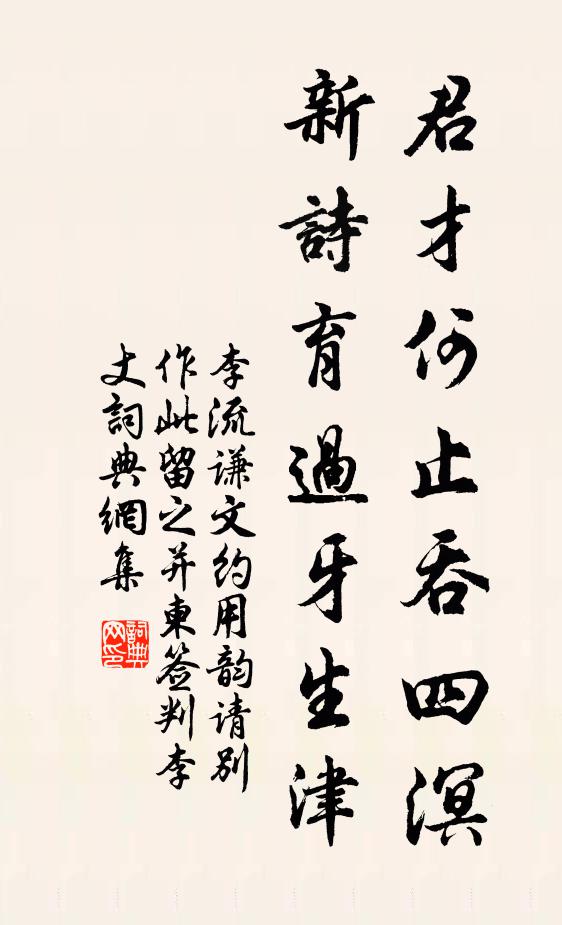 君才何止吞四溟
新詩育過牙生津
李流谦文约用韵请别
作此留之并東签判李
丈詞典網集
詞典
网印